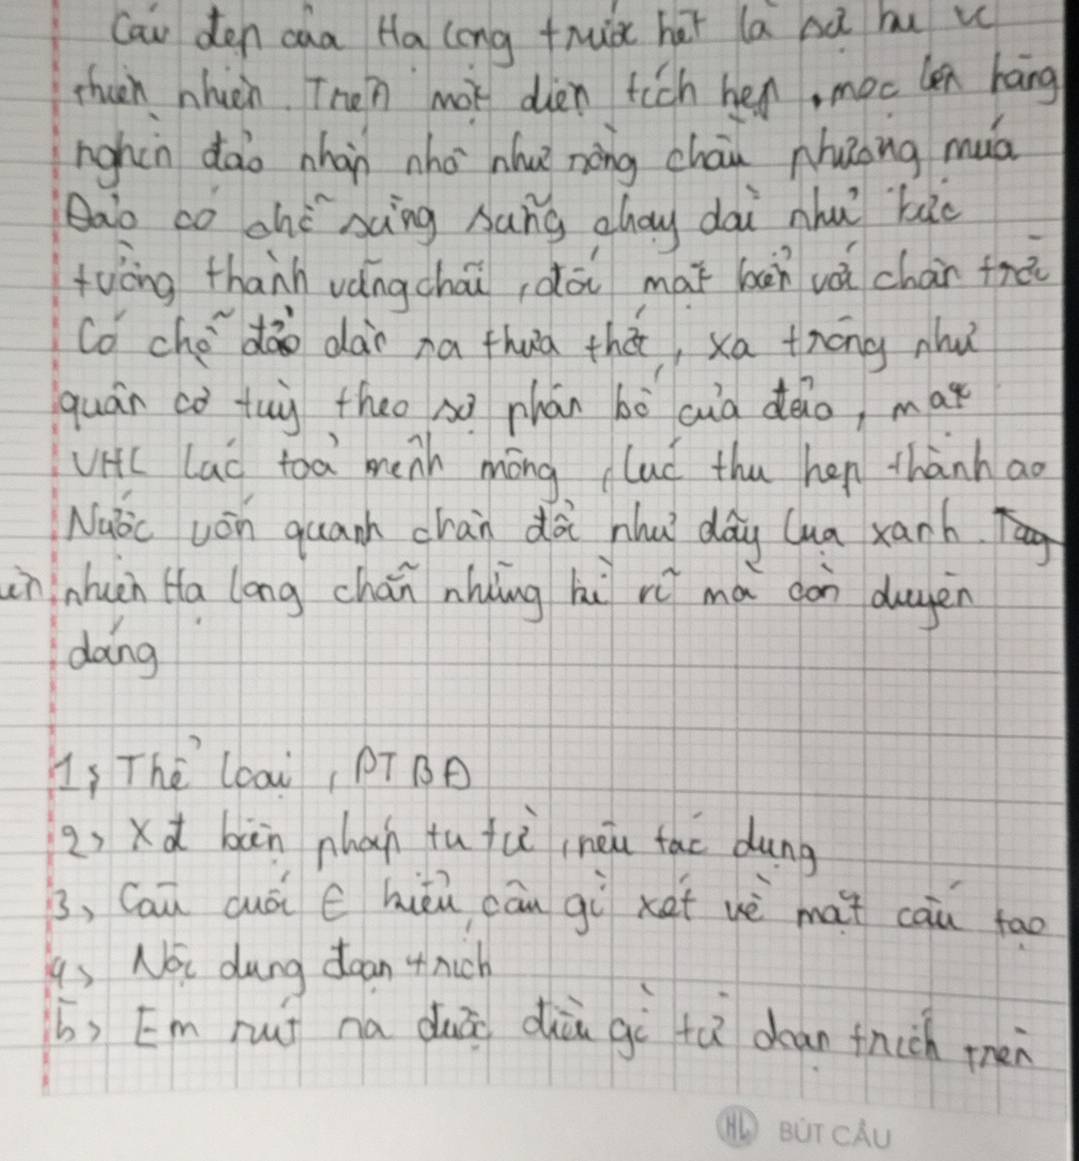 Cái đẹp của Hạ Long trước hết là sự kì vĩ
thiên nhiên. Trên một diện tích hẹp, mọc lên hàng
nghìn đảo nhấp nhô như nàng châu phượng múa
Đảo có chỗ sừng sững chạy dài như bức
tường thành vững chãi, đối mặt biển với chân trời
Có chỗ đảo dàn ra thưa thớt, xa trông như
quân cờ tuỳ theo sự phân bố của đảo, mặt
VHL lúc toả mênh mông, lúc thu hẹp thành ao
Nước vốn quanh chân đồi như dây lụa xanh.
nhiên Hạ Long chẳn những kì vĩ mà còn duyên
dáng
1, Thể loại, PTBĐ
2, Xđ biện pháp tu từ, nêu tác dụng
3, Câu cuối € kiểu câu gì xét về mặt cấu tạo
4, Nội dung đoạn trích
5, Em rút ra được điều gì từ đoạn trích trên
HL BÚT CÂU